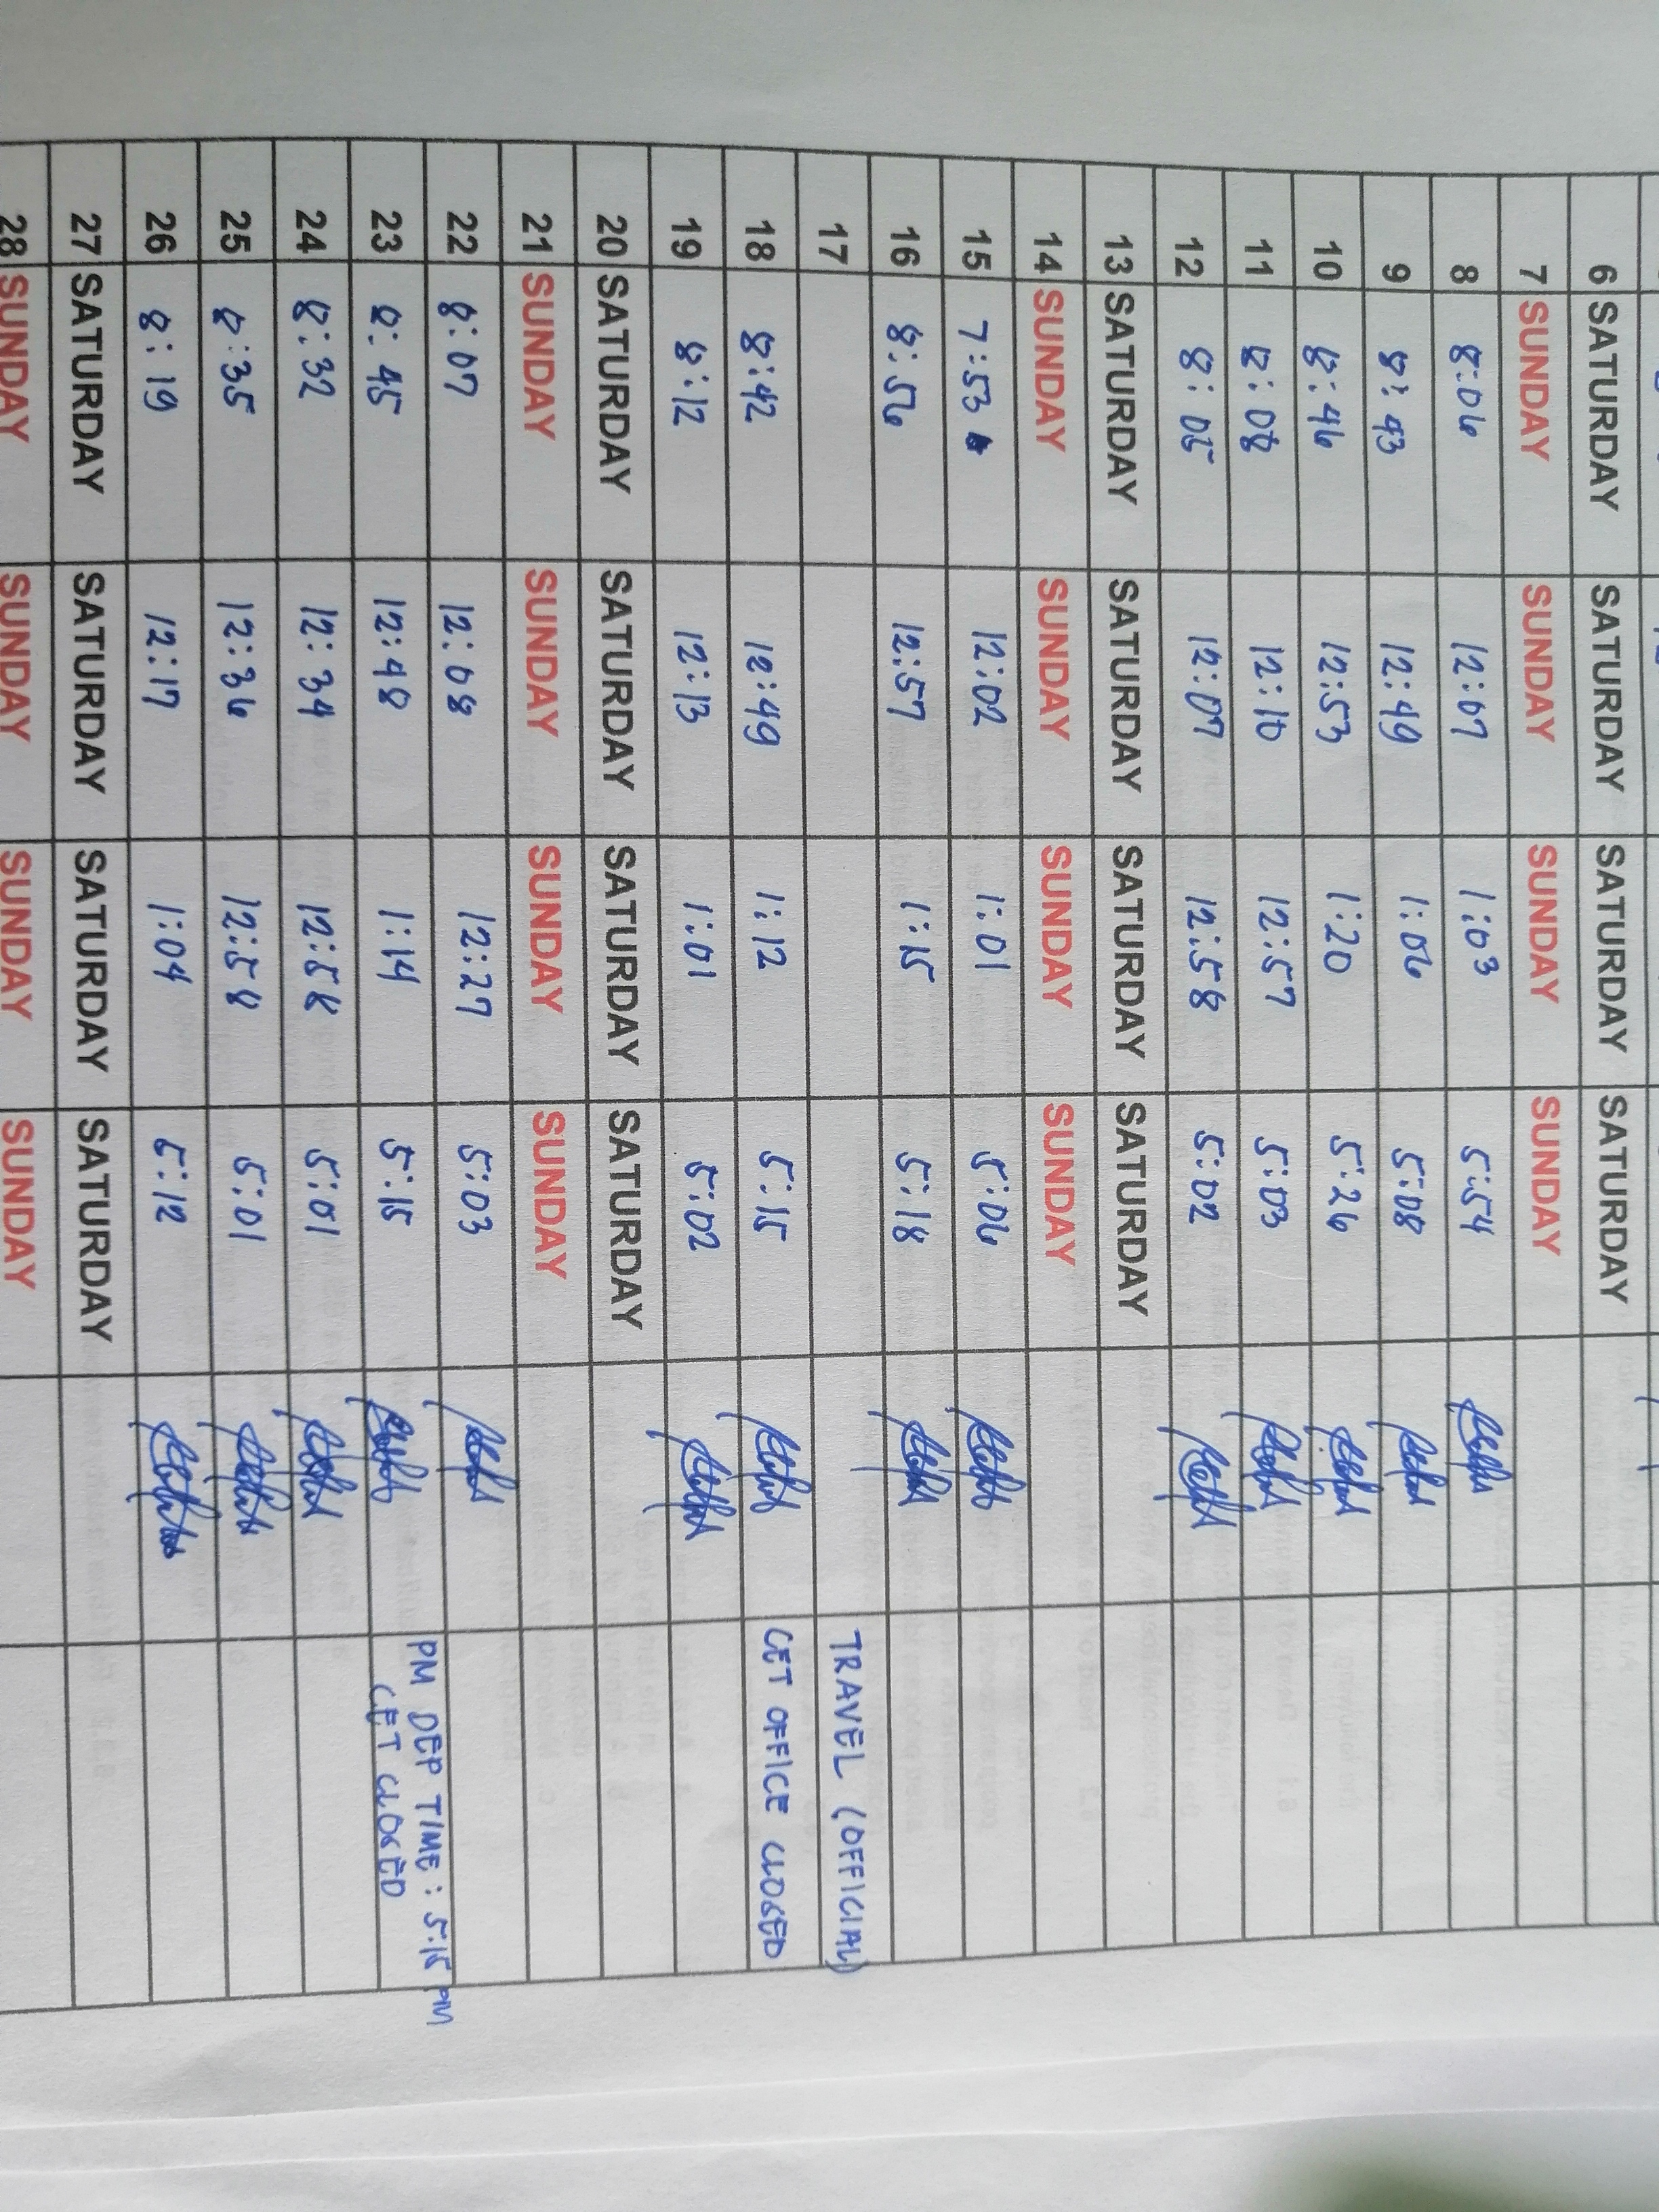 6 SATURDAY SATURDAY SATURDAY SATURDAY
7 SUNDAY SUNDAY SUNDAY SUNDAY
8 8:06 12:07 1:03 5:54
9 8:43 12:49 1:06 5:08
10 8:46 12:53 1:20 5:26
11 8:08 12:10 12:57 5:03
12 8:05 12:07 12:58 5:02
13 SATURDAY SATURDAY SATURDAY SATURDAY
14 SUNDAY SUNDAY SUNDAY SUNDAY
15 7:53 12:02 1:01 5:06
16 8:56 12:57 1:15 5:18
17 TRAVEL (OFFICIAL)
18 8:42 12:49 1:12 5:15 CET OFFICE CLOSED
19 8:12 12:13 1:01 5:02
20 SATURDAY SATURDAY SATURDAY SATURDAY
21 SUNDAY SUNDAY SUNDAY SUNDAY
22 8:07 12:08 12:27 5:03
23 8:45 12:48 1:14 5:15 PM DEP TIME: 5:15 PM
CET CLOSED
24 8:32 12:34 12:58 5:01
25 8:35 12:36 12:58 5:01
26 8:19 12:17 1:04 5:12
27 SATURDAY SATURDAY SATURDAY SATURDAY
28 SUNDAY SUNDAY SUNDAY SUNDAY